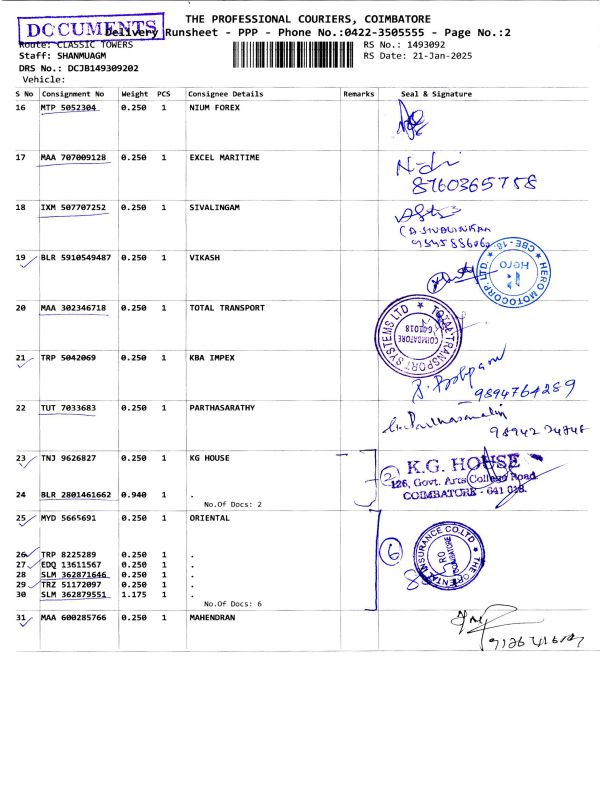 THE PROFESSIONAL COURIERS, COIMBATORE
DOCUMENTS
Delivery Runsheet - PPP - Phone No.:0422-3505555 - Page No.:2
Route: CLASSIC TOWERS
RS No.: 1493092
Staff: SHANMUAGM
RS Date: 21-Jan-2025
DRS No.: DCJB149309202
Vehicle:
S No Consignment No Weight PCS Consignee Details Remarks Seal & Signature
16 MTP 5052304 0.250 1 NIUM FOREX
17 MAA 707009128 0.250 1 EXCEL MARITIME
8760365758
18 IXM 507707252 0.250 1 SIVALINGAM
19 BLR 5910549487 0.250 1 VIKASH
HERO MOTOCORP LTD. ★ CBE - 18. ★
Hero
20 MAA 302346718 0.250 1 TOTAL TRANSPORT
TOTAL TRANSPORT SYSTEMS LTD ★
COIMBATORE
21 TRP 5042069 0.250 1 KBA IMPEX
9894764289
22 TUT 7033683 0.250 1 PARTHASARATHY
23 TNJ 9626827 0.250 1 KG HOUSE
2
K.G. HOUSE
126, Govt. Arts College Road.
COIMBATORE - 641 018.
24 BLR 2801461662 0.940 1 .
No.Of Docs: 2
25 MYD 5665691 0.250 1 ORIENTAL
6
★ THE ORIENTAL INSURANCE CO.LTD
COIMBATORE
26 TRP 8225289 0.250 1 .
27 EDQ 13611567 0.250 1 .
28 SLM 362871646 0.250 1 .
29 TRZ 51172097 0.250 1 .
30 SLM 362879551 1.175 1 .
No.Of Docs: 6
31 MAA 600285766 0.250 1 MAHENDRAN